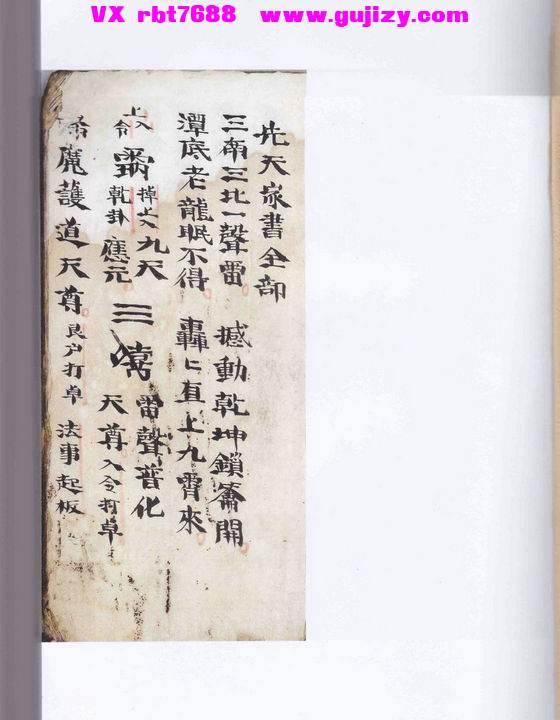 VX rbt7688 www.gujizy.com
先天家書全部
三南三北一聲雷 撼動乾坤鎖籥開
潭底老龍眠不得 轟〻直上九霄來
上入 掉上又 九天 雷聲普化
令 乾卦 應元 三 天尊 入令打卓
魔護道天尊 艮户打卓 法事起板